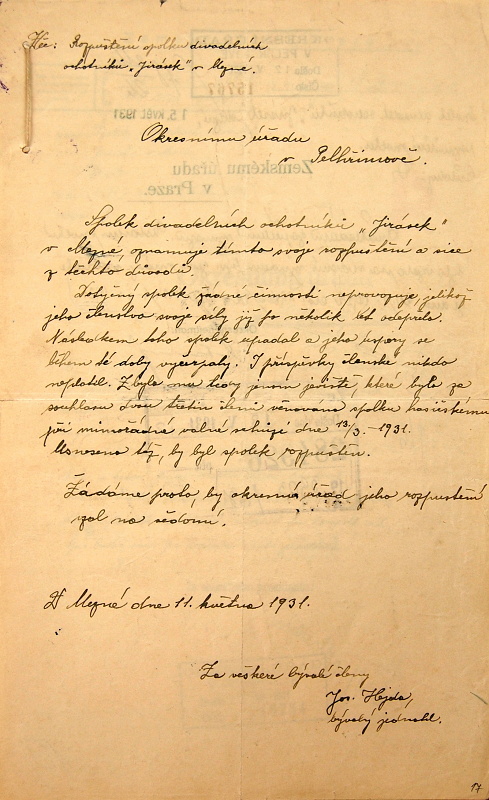 Věc: Rozpuštění spolku divadelních
ochotníků „Jirásek“ v Mezné.
Okresnímu úřadu
v Pelhřimově.
Spolek divadelních ochotníků „Jirásek“
v Mezné, oznamuje tímto svoje rozpuštění a sice
z těchto důvodů.
Dotyčný spolek žádné činnosti neprovozuje, jelikož
jeho členstvo svoje síly již po několik let odepřelo.
Následkem toho spolek upadal a jeho úspory se
během té doby vyčerpaly. I příspěvky členské nikdo
neplatil. Zbylo mu tedy jenom jeviště, které bylo za
souhlasu dvou třetin členů věnováno spolku hasičskému
při mimořádné valné schůzi dne 13/3.-1931.
Usneseno též, by byl spolek rozpuštěn.
Žádáme proto, by okresní úřad jeho rozpuštění
vzal na vědomí.
V Mezné dne 11. května 1931.
Za veškeré bývalé členy
Jos. Hejda,
bývalý jednatel.
17